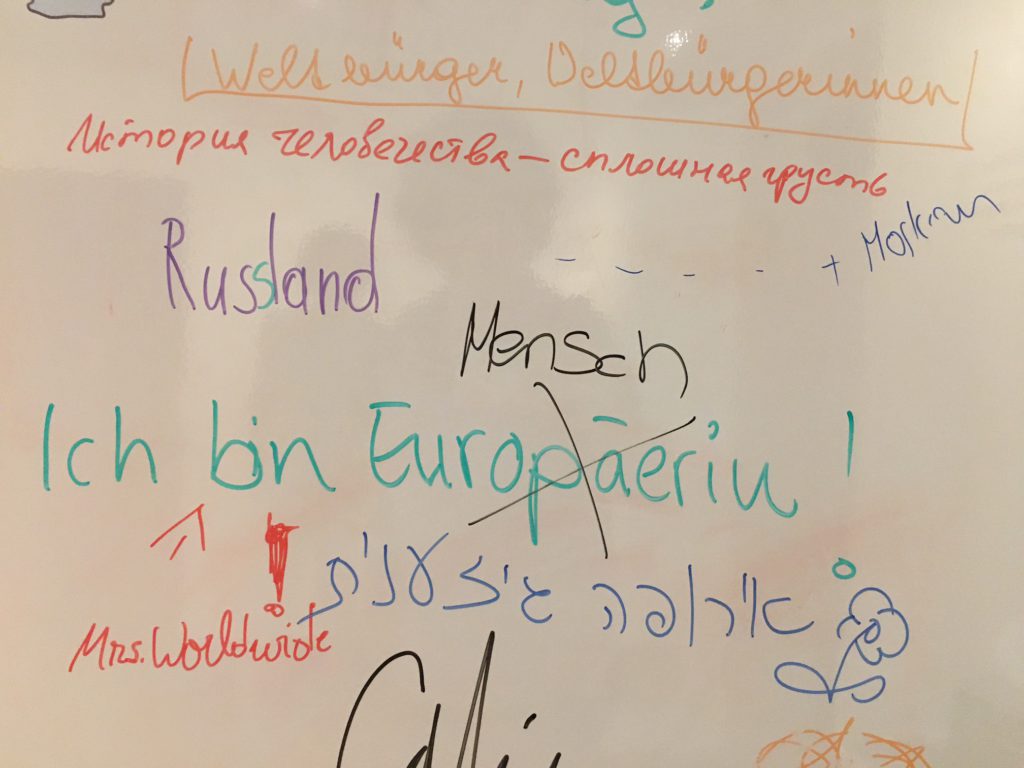 Weltbürger, Veltbürgerinnen
История человечества – сплошная грусть
Russland
Mensch
Ich bin Europäerin !
!
Mrs. Worldwide
אירופה